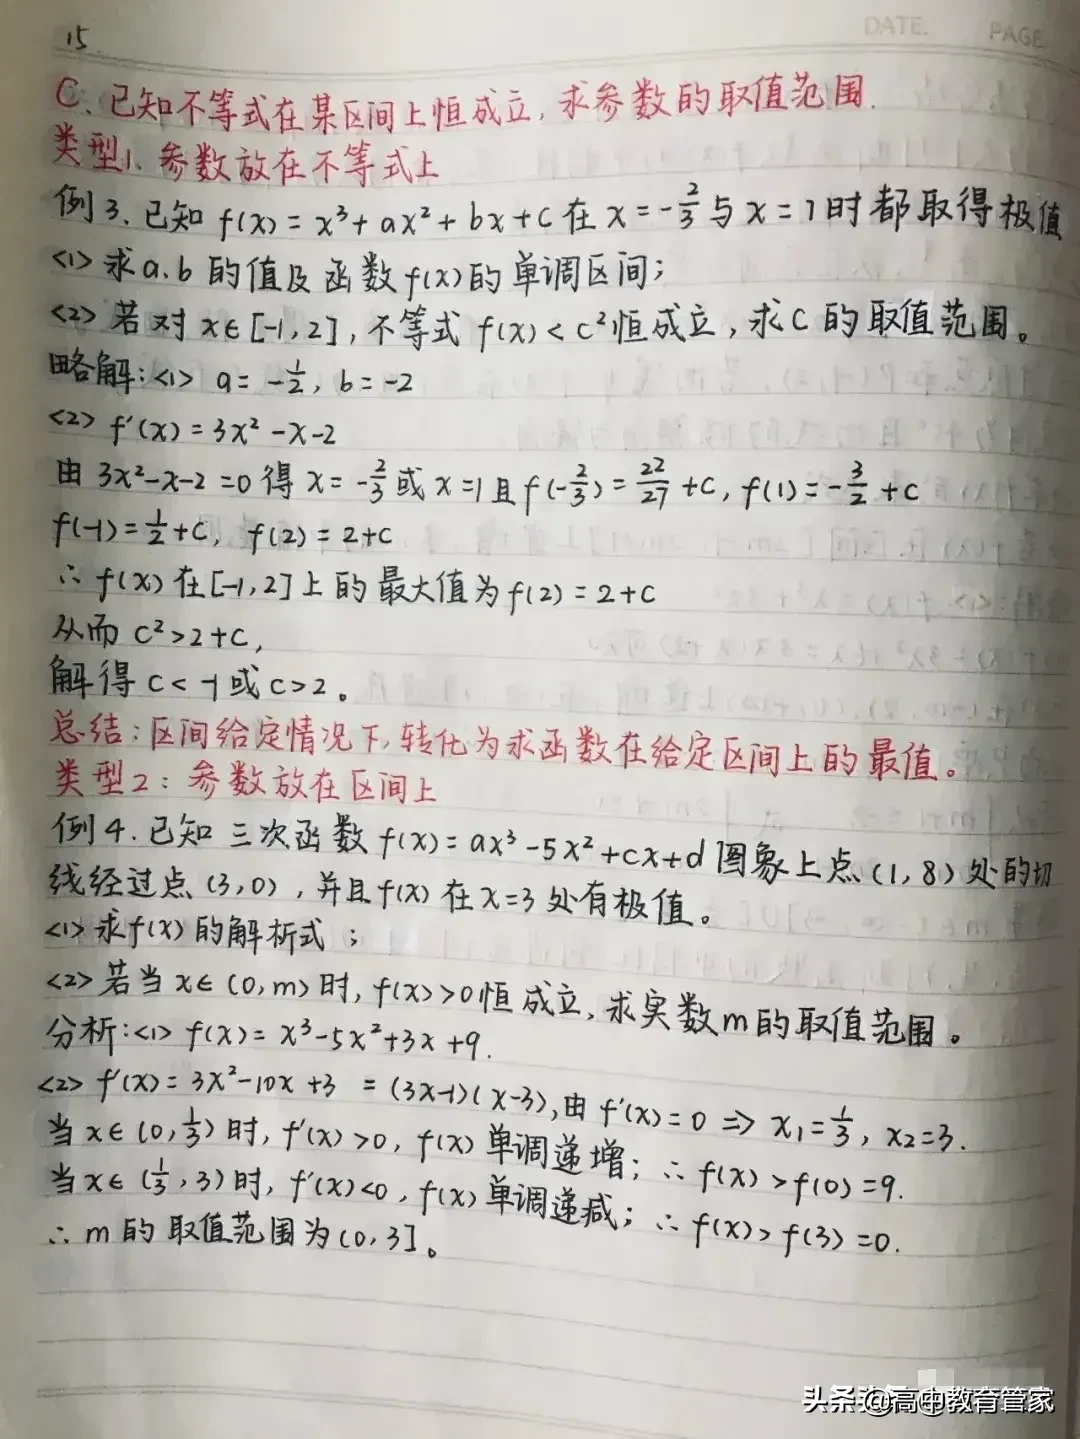 DATE. PAGE
15
C、已知不等式在某区间上恒成立,求参数的取值范围.
类型1、参数放在不等式上
例3.已知 f(x)=x³+ax²+bx+c在x=-2/3与x=1时都取得极值
<1>求a.b的值及函数f(x)的单调区间;
<2>若对x∈[-1,2],不等式f(x)<c²恒成立,求c的取值范围。
略解:<1> a=-1/2, b=-2
<2> f'(x)=3x²-x-2
由3x²-x-2=0得x=-2/3或x=1且f(-2/3)=22/27+c, f(1)=-3/2+c
f(-1)=1/2+c, f(2)=2+c
∴f(x)在[-1,2]上的最大值为f(2)=2+c
从而c²>2+c,
解得c<-1或c>2。
总结:区间给定情况下,转化为求函数在给定区间上的最值。
类型2:参数放在区间上
例4.已知三次函数f(x)=ax³-5x²+cx+d图象上点(1,8)处的切
线经过点(3,0),并且f(x)在x=3处有极值。
<1>求f(x)的解析式;
<2>若当x∈(0,m)时,f(x)>0恒成立,求实数m的取值范围。
分析:<1> f(x)=x³-5x²+3x+9.
<2> f'(x)=3x²-10x+3=(3x-1)(x-3),由f'(x)=0⇒x₁=1/3, x₂=3.
当x∈(0,1/3)时,f'(x)>0,f(x)单调递增;∴f(x)>f(0)=9.
当x∈(1/3,3)时,f'(x)<0,f(x)单调递减;∴f(x)>f(3)=0.
∴m的取值范围为(0,3]。
头条@高中教育管家